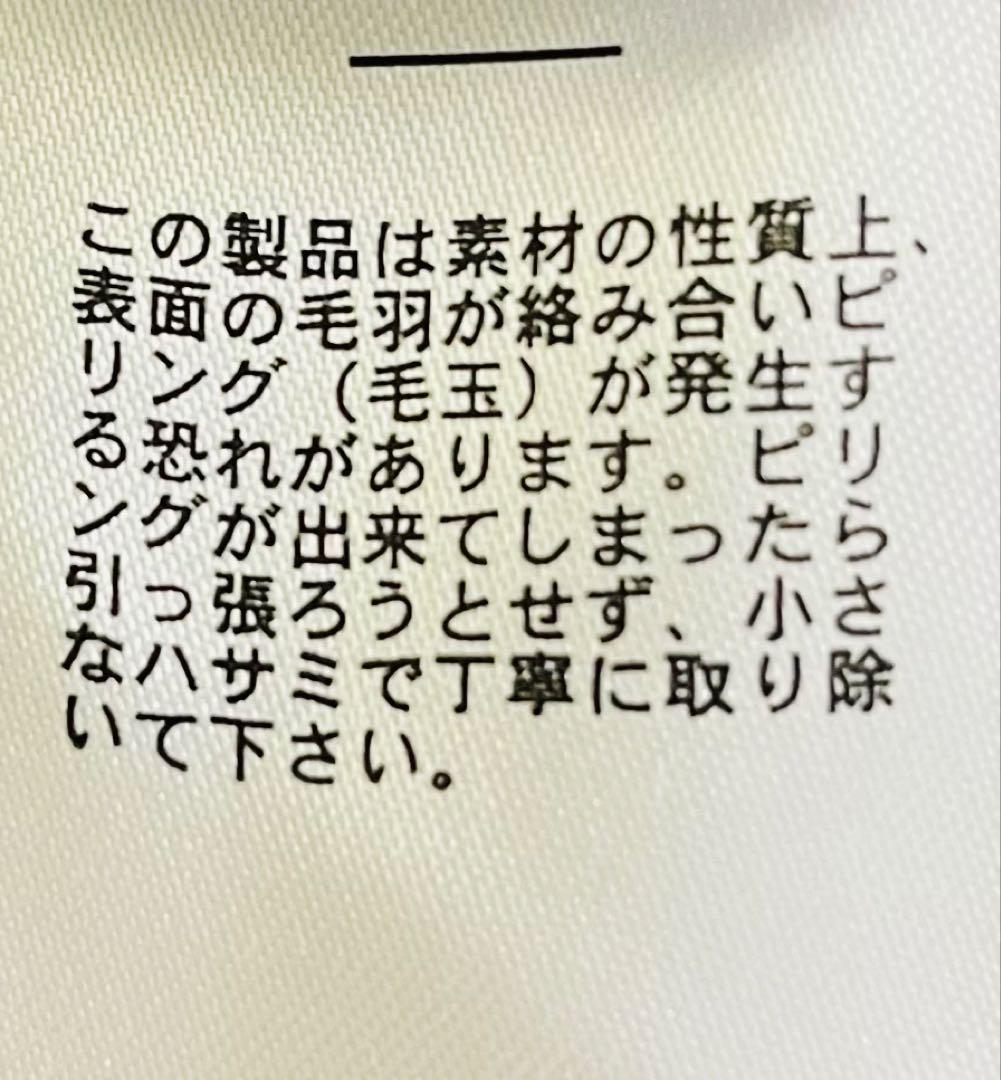 この製品は素材の性質上、
表面の毛羽が絡み合いピ
リング（毛玉）が発生す
る恐れがあります。ピリ
ングが出来てしまったら
引っ張ろうとせず、小さ
なハサミで丁寧に取り除
いて下さい。